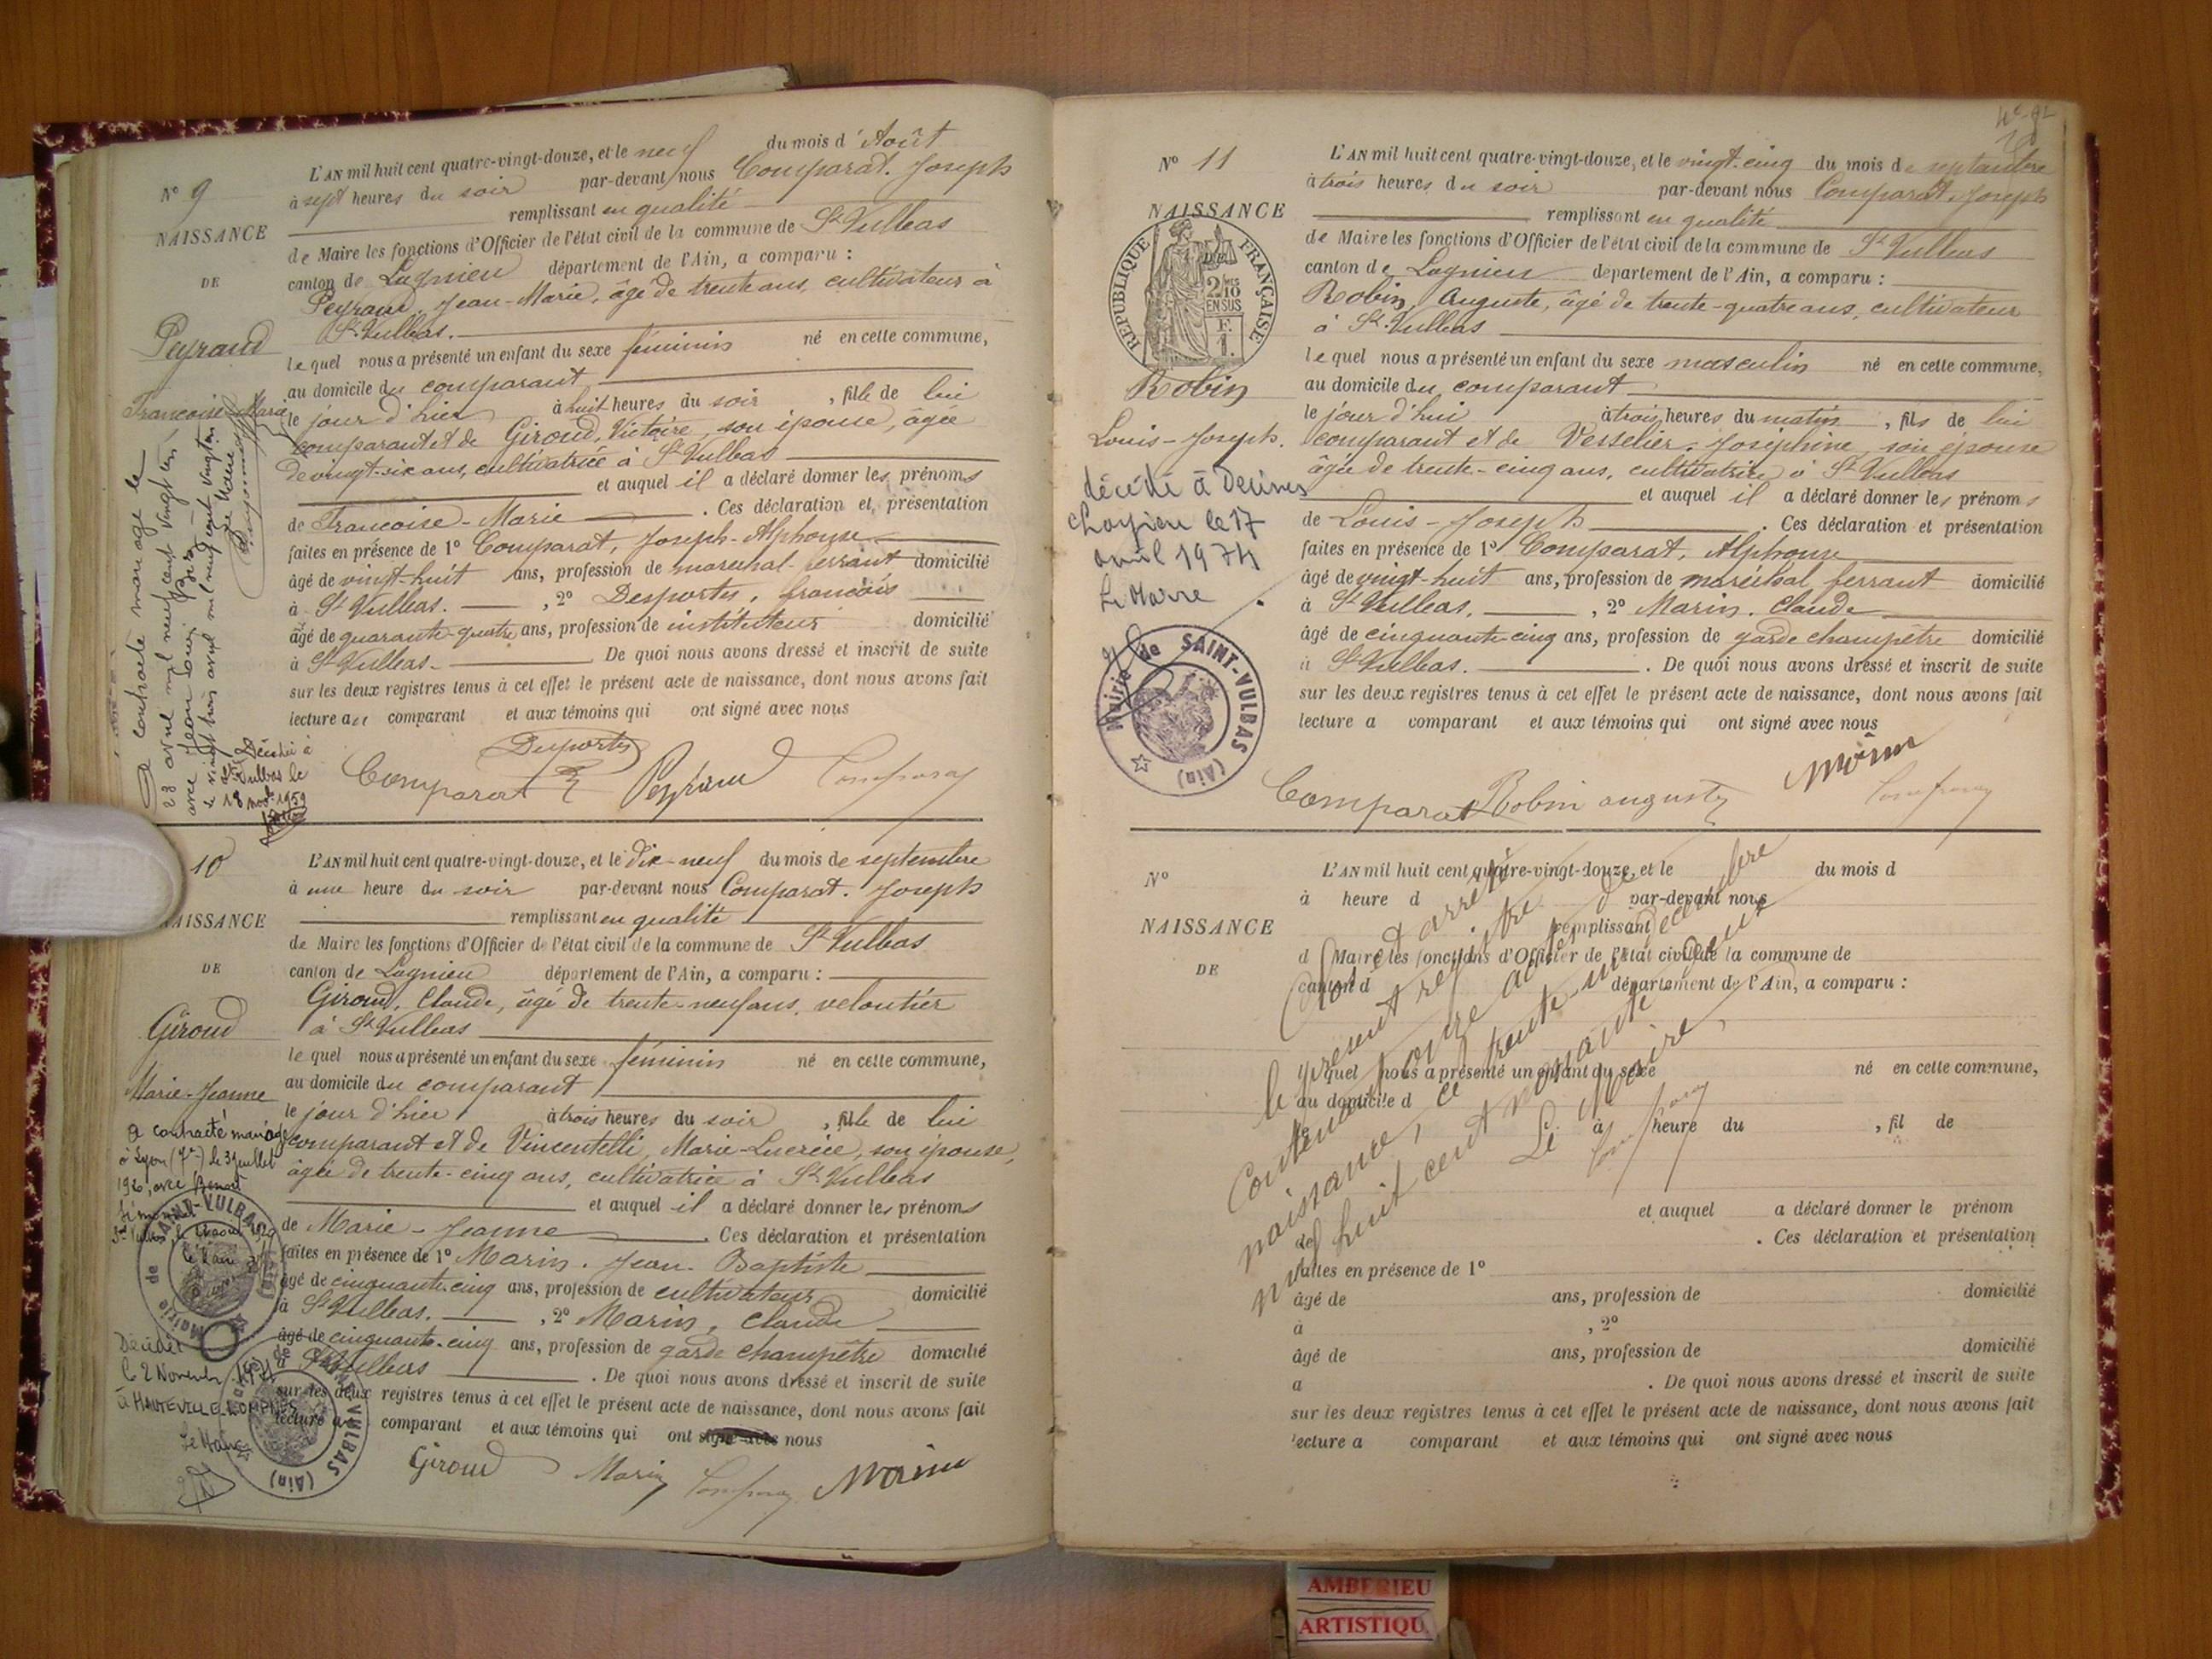 N° 9
NAISSANCE
DE
Peyraud
Françoise-Marie
L'AN mil huit cent quatre-vingt-douze, et le neuf du mois d'Août
à sept heures du soir par-devant nous Comparat. Joseph
remplissant en qualité
de Maire les fonctions d'Officier de l'état civil de la commune de St Vulbas
canton de Lagnieu département de l'Ain, a comparu :
Peyraud, Jean-Marie, âgé de trente ans, cultivateur à
St Vulbas.
lequel nous a présenté un enfant du sexe féminin né en cette commune,
au domicile du comparant
le jour d'hier à huit heures du soir, fille de lui
comparant et de Giroud, Victoire, son épouse, âgée
de vingt-six ans, cultivatrice à St Vulbas
et auquel il a déclaré donner les prénoms
de Françoise-Marie. Ces déclaration et présentation
faites en présence de 1° Comparat, Joseph-Alphonse
âgé de vingt-huit ans, profession de maréchal-ferrant domicilié
à St Vulbas., 2° Desportes, françois
âgé de quarante-quatre ans, profession de instituteur domicilié
à St Vulbas. De quoi nous avons dressé et inscrit de suite
sur les deux registres tenus à cet effet le présent acte de naissance, dont nous avons fait
lecture au comparant et aux témoins qui ont signé avec nous
Desportes
Comparat Peyraud Comparat
A contracté mariage le
23 avril mil neuf cent vingt un
avec Jean Louis
le vingt trois avril mil neuf cent vingt un
Le Maire
Décédée à
St Vulbas le
18 nov. 1959
10
NAISSANCE
DE
Giroud
Marie-Jeanne
a contracté mariage
à Lyon (7e) le 3 juillet
1920, avec Benoit
Le Maire
MAIRIE de SAINT-VULBAS (Ain)
Décédée
le 2 Novembre 1971
à HAUTEVILLE-LOMPNES
Le Maire
L'AN mil huit cent quatre-vingt-douze, et le dix-neuf du mois de septembre
à une heure du soir par-devant nous Comparat. Joseph
remplissant en qualité
de Maire les fonctions d'Officier de l'état civil de la commune de St Vulbas
canton de Lagnieu département de l'Ain, a comparu :
Giroud, Claude, âgé de trente-neuf ans, veloutier
à St Vulbas
lequel nous a présenté un enfant du sexe féminin né en cette commune,
au domicile du comparant
le jour d'hier à trois heures du soir, fille de lui
comparant et de Vincentelli, Marie-Lucrèce, son épouse,
âgée de trente-cinq ans, cultivatrice à St Vulbas
et auquel il a déclaré donner les prénoms
de Marie-Jeanne. Ces déclaration et présentation
faites en présence de 1° Marin. Jean-Baptiste
âgé de cinquante-cinq ans, profession de cultivateur domicilié
à St Vulbas., 2° Marin, Claude
âgé de cinquante-cinq ans, profession de garde champêtre domicilié
à St Vulbas. De quoi nous avons dressé et inscrit de suite
sur les deux registres tenus à cet effet le présent acte de naissance, dont nous avons fait
lecture au comparant et aux témoins qui ont signé avec nous
Giroud Marin Comparat Marin
N° 11
NAISSANCE
REPUBLIQUE FRANÇAISE
2/10 EN SUS
F. 1.
Robin
Louis-Joseph.
décédé à Décines
Charpieu le 17
avril 1974
Le Maire
Mairie de SAINT-VULBAS (Ain)
L'AN mil huit cent quatre-vingt-douze, et le vingt-cinq du mois de septembre
à trois heures du soir par-devant nous Comparat. Joseph
remplissant en qualité
de Maire les fonctions d'Officier de l'état civil de la commune de St Vulbas
canton de Lagnieu département de l'Ain, a comparu :
Robin, Auguste, âgé de trente-quatre ans, cultivateur
à St Vulbas
lequel nous a présenté un enfant du sexe masculin né en cette commune,
au domicile du comparant
le jour d'hui à trois heures du matin, fils de lui
comparant et de Vesselier. Josephine, son épouse
âgée de trente-cinq ans, cultivatrice à St Vulbas
et auquel il a déclaré donner les prénoms
de Louis-Joseph. Ces déclaration et présentation
faites en présence de 1° Comparat, Alphonse
âgé de vingt-huit ans, profession de maréchal ferrant domicilié
à St Vulbas., 2° Marin. Claude
âgé de cinquante-cinq ans, profession de garde champêtre domicilié
à St Vulbas. De quoi nous avons dressé et inscrit de suite
sur les deux registres tenus à cet effet le présent acte de naissance, dont nous avons fait
lecture a comparant et aux témoins qui ont signé avec nous
Marin
Comparat Robin auguste Comparat
N°
NAISSANCE
DE
L'AN mil huit cent quatre-vingt-douze, et le du mois d
à heure d par-devant nous
remplissant
d Maire les fonctions d'Officier de l'état civil de la commune de
canton d département de l'Ain, a comparu :
le quel nous a présenté un enfant du sexe né en cette commune,
au domicile d
le à heure du, fil de
et auquel a déclaré donner le prénom
de. Ces déclaration et présentation
faites en présence de 1°
âgé de ans, profession de domicilié
à, 2°
âgé de ans, profession de domicilié
a. De quoi nous avons dressé et inscrit de suite
sur les deux registres tenus à cet effet le présent acte de naissance, dont nous avons fait
lecture a comparant et aux témoins qui ont signé avec nous
Clos et arrêté
le présent registre
contenant onze actes de
naissance, ce trente-un décembre
mil huit cent nonante deux
Le Maire,
Comparat
AMBERIEU
ARTISTIQU